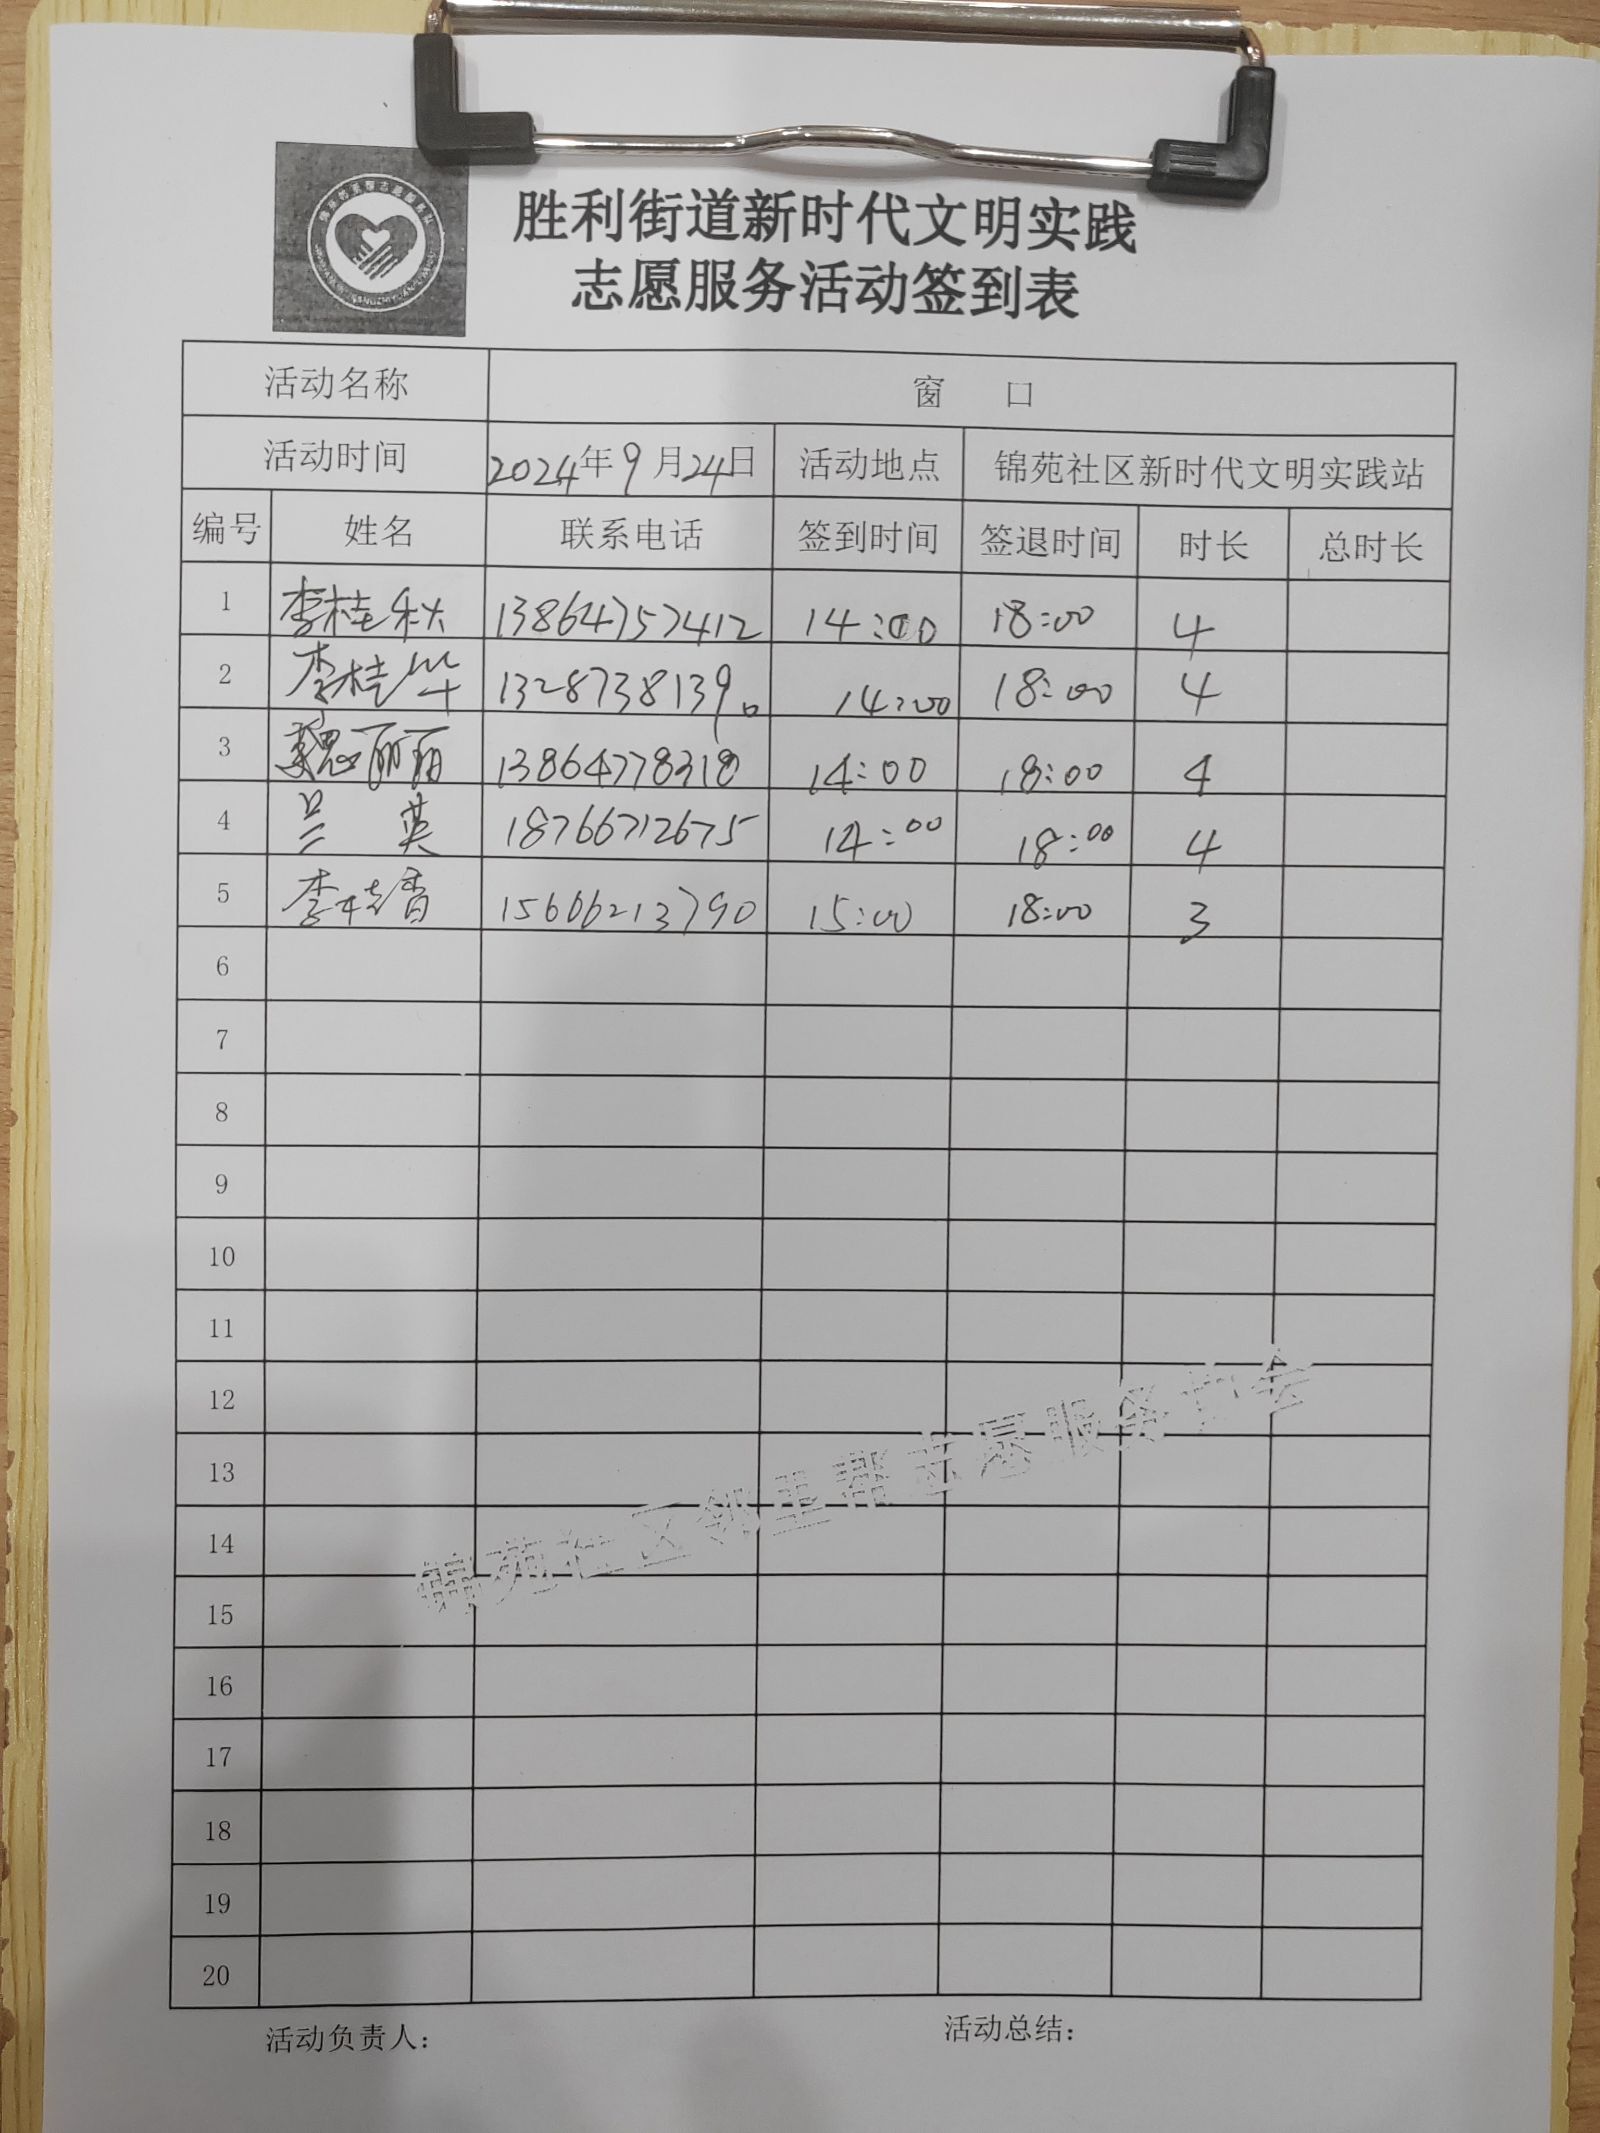 胜利街道新时代文明实践
志愿服务活动签到表
活动名称 窗 口
活动时间 2024年9月24日 活动地点 锦苑社区新时代文明实践站
编号 姓名 联系电话 签到时间 签退时间 时长 总时长
1 李桂秋 13864757412 14:00 18:00 4
2 李桂华 13287381390 14:00 18:00 4
3 魏丽丽 13864778318 14:00 18:00 4
4 兰英 18766712675 14:00 18:00 4
5 李桂香 15606213790 15:00 18:00 3
6
7
8
9
10
11
12
13
14
15
16
17
18
19
20
锦苑社区邻里帮志愿服务协会
活动负责人： 活动总结：